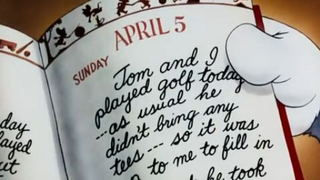 APRIL 5
SUNDAY
Tom and I
played golf today
---as usual he
didn't bring any
tees --- so it was
to me to fill in
he took
day
played
ut